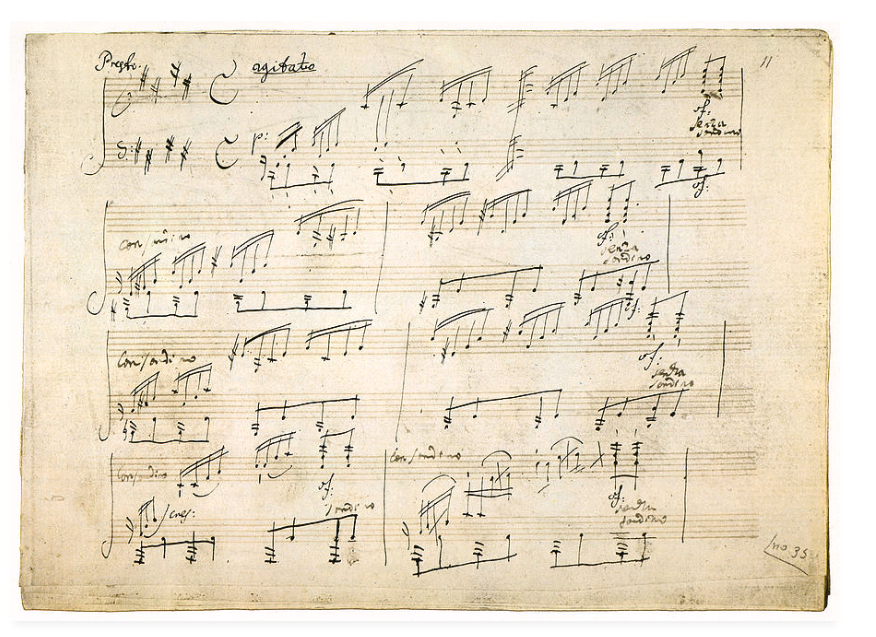 Presto. agitato
11
p:
sf:
senza
sordino
sf:
con sordino
sf:
senza
sordino
sf:
con sordino
sf:
senza
sordino
con sordino
con sordino
sf:
sordino
cres:
sf:
senza
sordino
no 35